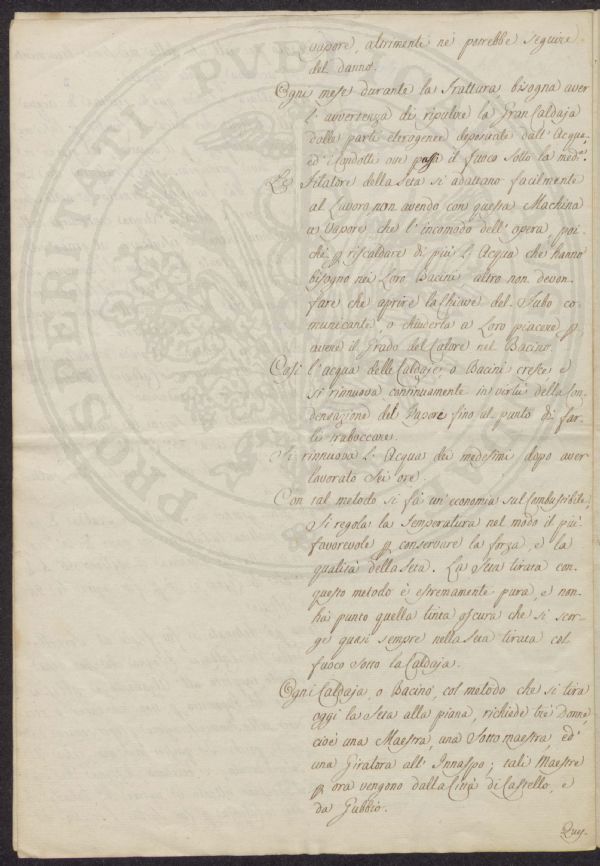 vapore, altrimenti ne potrebbe seguire
del danno.
Ogni mese durante la Trattura, bisogna aver
l' avvertenza di ripulire la Gran Caldaja
dalle parti eterogenee depositate dall' Acqua,
ed' i Condotti ove passi il fuoco sotto la med.ª
Le Filatore della Seta si adattano facilmente
al Lavoro non avendo con questa Machina
a Vapore che l' incomodo dell' opera, poi-
chè p riscaldare di più l' Acqua che hanno
bisogno nei Loro Bacini altro non devon-
fare che aprire la Chiave del Tubo co-
municante, o chiuderla a Loro piacere p
avere il Grado del Calore nel Bacino.
Così l' acqua delle Caldaje, o Bacini cresce e
si rinnuova continuamente in virtù della Con-
densazione del Vapore fino al punto di far-
le traboccare.
Si rinnuova l' Acqua dei medesimi dopo aver
lavorato Sei ore.
Con tal metodo si fà un' economia sul Combustibile,
Si regola la Temperatura nel modo il più
favorevole p conservare la forza, e la
qualità della Seta. La Seta tirata con-
questo metodo è estremamente pura, e non
hà punto quella tinta oscura che si scor-
ge quasi sempre nella Seta tirata col
fuoco Sotto la Caldaja.
Ogni Caldaja, o Bacino, col metodo che si tira
oggi la Seta alla piana, richiede trè Donne,
cioè una Maestra, una Sotto maestra, ed'
una Giratora all' Innaspo; tali Maestre
p ora vengono dalla Città di Castello, e
da Gubbio.
PROSPERITATI PVBLICAE